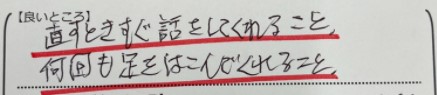 【良いところ】
直すときすぐ話をしてくれること、
何回も足をはこんでくれること、